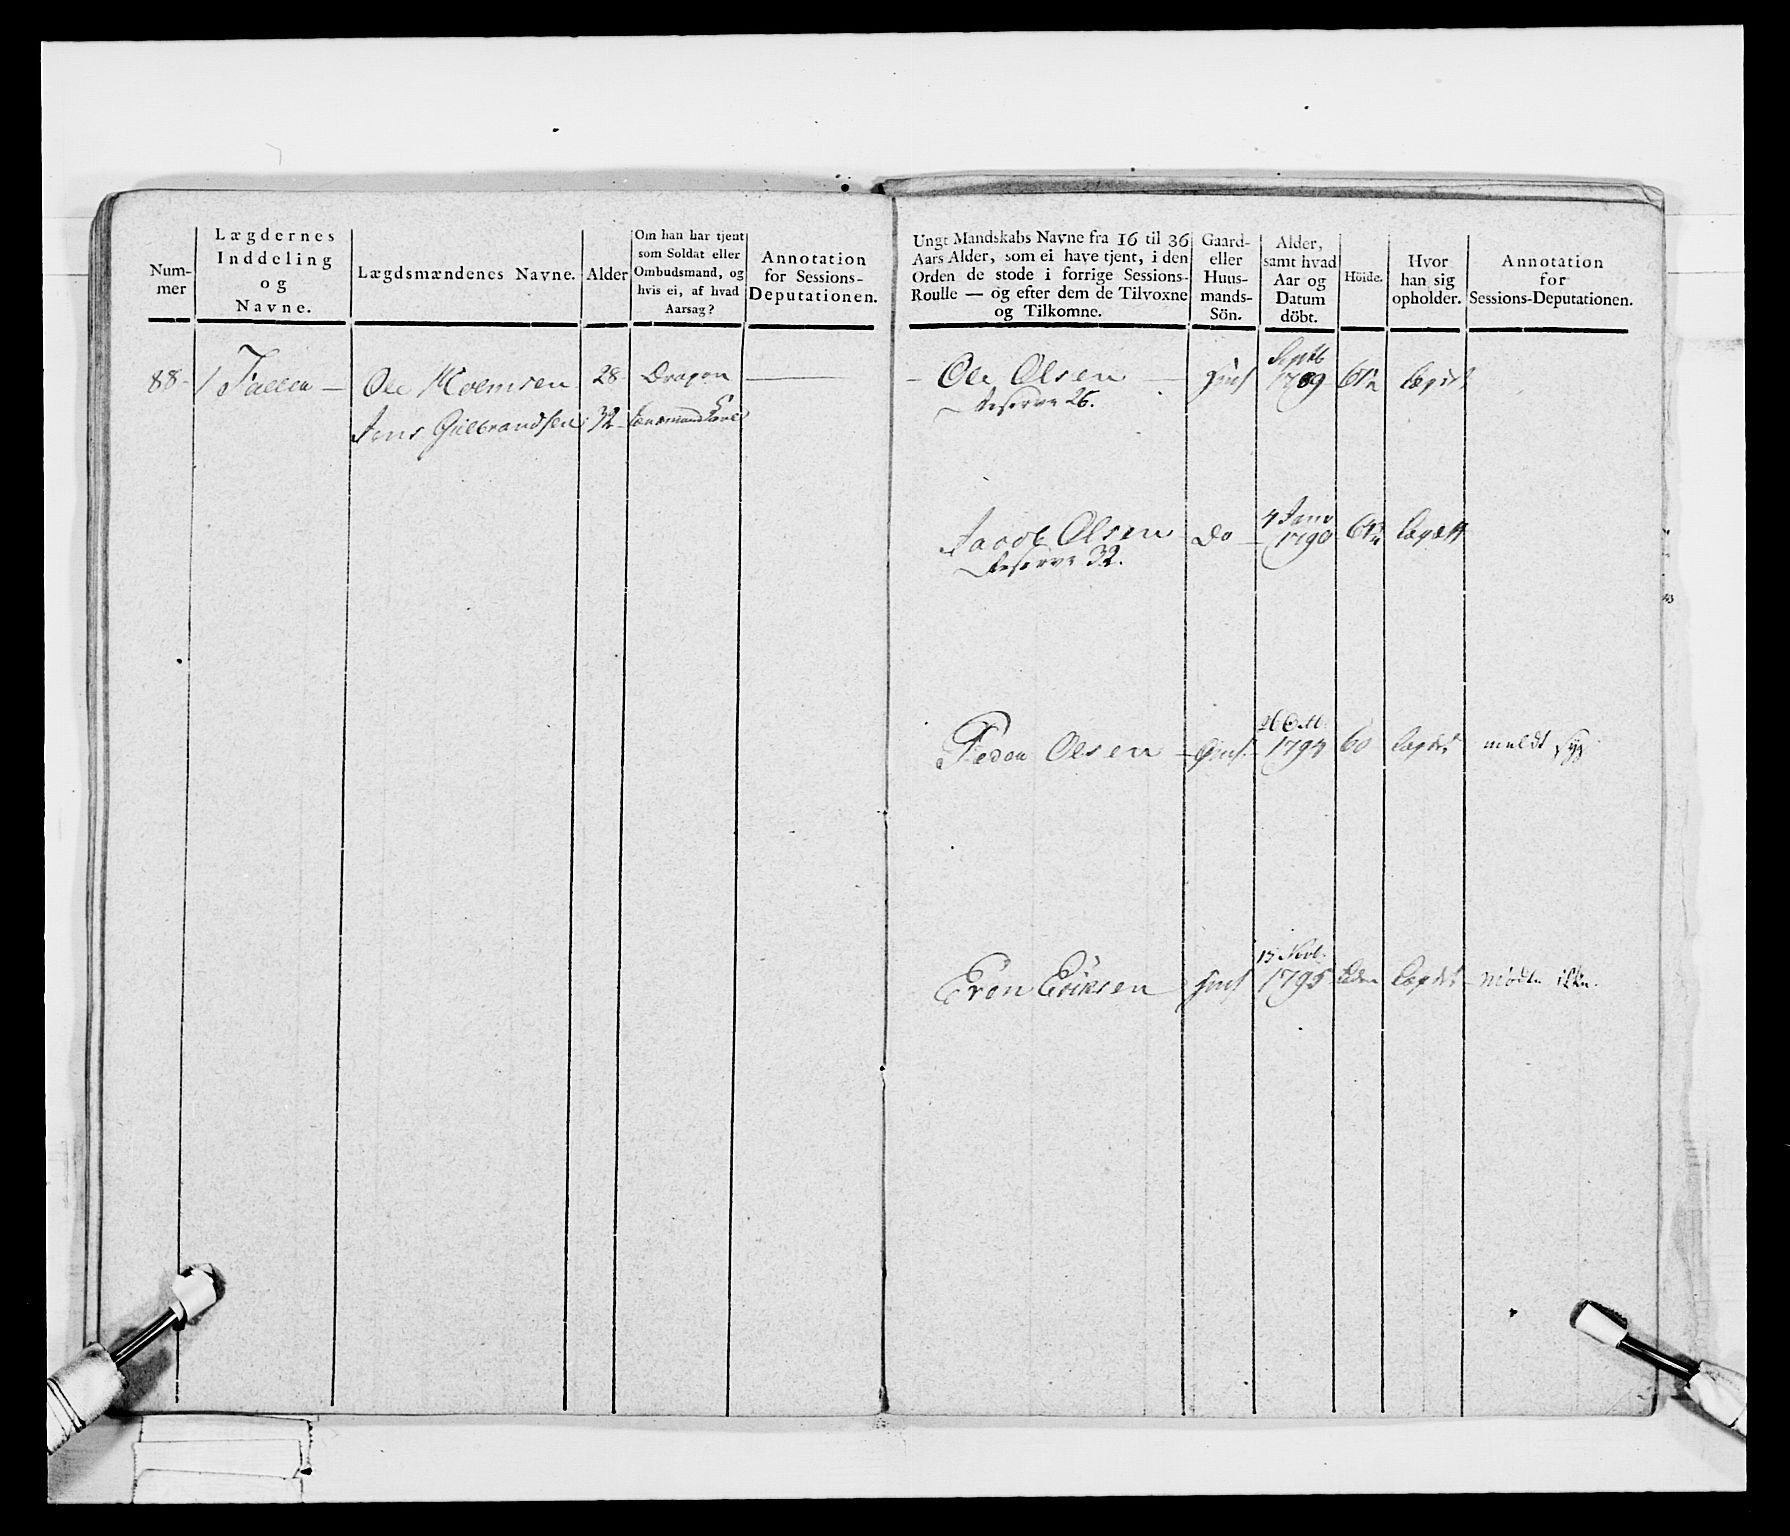 Num-
mer
Lægdernes
Inddeling
og
Navne.
Lægdsmændenes Navne.
Alder
Om han har tjent
som Soldat eller
Ombudsmand, og
hvis ei, af hvad
Aarsag?
Annotation
for Sessions-
Deputationen.
88-
Ole Holmsen 28 Dragon
Jens Gulbrandsen 32
Ungt Mandskabs Navne fra 16 til 36
Aars Alder, som ei have tjent, i den
Orden de stode i forrige Sessions-
Roulle — og efter dem de Tilvoxne
og Tilkomne.
Gaard-
eller
Huus-
mands-
Sön.
Alder,
samt hvad
Aar og
Datum
döbt.
Höide.
Hvor
han sig
opholder.
Annotation
for
Sessions-Deputationen.
Ole Olsen 1789
Reserve 26.
4 Janv
Jacob Olsen Do 1790
Reserve 32.
26 Octb.
Peder Olsen 1794 60 Lægdet meldt syg
15 Novb.
Even Eriksen 1795 Lægdet mödte ikke.